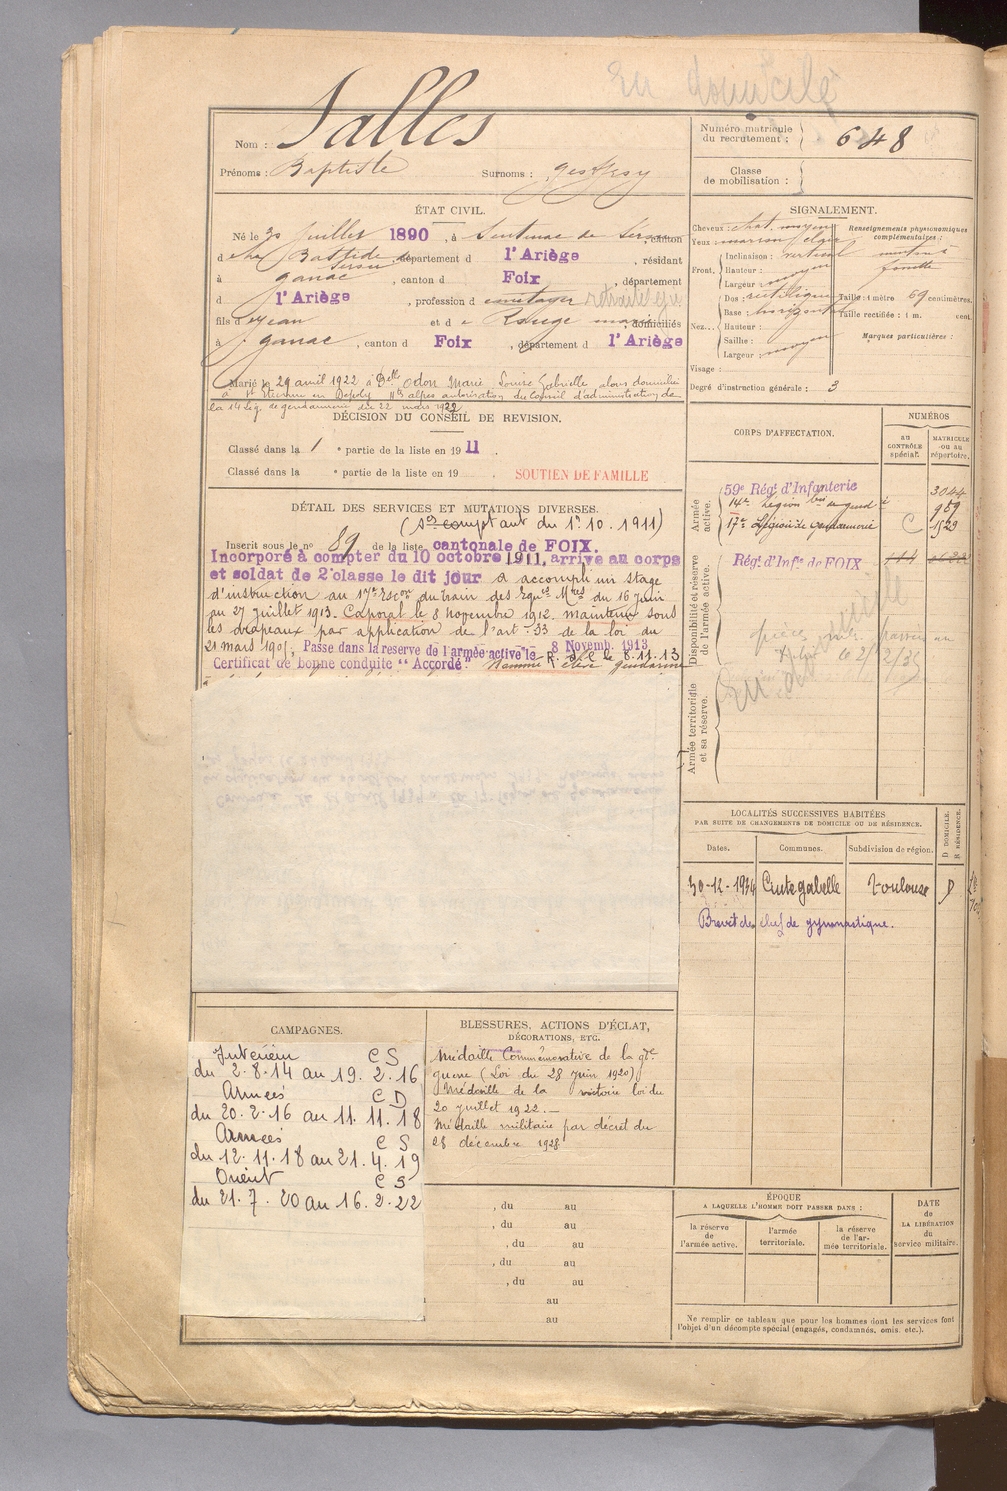 en domicile
Salles
Nom :
Prénoms : Baptiste Surnoms :
Numéro matricule
du recrutement : 648
Classe
de mobilisation :
ÉTAT CIVIL.
Né le 30 Juillet 1890, à Sentenac de Serou, canton
de La Bastide de Serou, département d l'Ariège, résidant
à Ganac, canton d Foix, département
d l'Ariège, profession d retraité gie
fils de Jean et de Rouge marie, domiciliés
à Ganac, canton d Foix, département d l'Ariège
Marié le 29 avril 1922 à Delle Odon Marie Louise Gabrielle, alors domiciliée
à St Etienne en Dévoluy Htes alpes autorisation du Conseil d'administration de
la 14 lég. de gendarmerie du 22 mars 1922
SIGNALEMENT.
Cheveux : chat. moyen
Yeux : marron clair
Front. Inclinaison : vertical
Hauteur : moyen
Largeur : moyen
Nez... Dos : rectiligne
Base : horizontal
Hauteur :
Saillie :
Largeur : moyen
Visage :
Degré d'instruction générale : 3
Renseignements physionomiques
complémentaires :
Taille : 1 mètre 69 centimètres.
Taille rectifiée : 1 m. cent.
Marques particulières :
DÉCISION DU CONSEIL DE REVISION.
Classé dans la 1 e partie de la liste en 1911.
Classé dans la e partie de la liste en 19 .
SOUTIEN DE FAMILLE
DÉTAIL DES SERVICES ET MUTATIONS DIVERSES.
(Sce comptant du 1er.10.1911)
Inscrit sous le no 89 de la liste cantonale de FOIX.
Incorporé à compter du 10 octobre 1911, arrive au corps
et soldat de 2e classe le dit jour a accompli un stage
d'instruction au 17e Escon du train des Equges Mres du 16 Juin
au 27 juillet 1913. Caporal le 8 novembre 1912. maintenu sous
les drapeaux par application de l'art. 33 de la loi du
21 mars 1905, Passe dans la réserve de l'armée active le 8 Novemb. 1913
Certificat de bonne conduite "Accordé" Nommé élève gendarme
R. D. C. le 8.11.13
CORPS D'AFFECTATION.
NUMÉROS
AU CONTRÔLE spécial.
MATRICULE ou au répertoire.
Armée active.
59e Régt d'Infanterie 3044
14e Légion 989
17e Légion de Gendarmerie C 1529
Disponibilité et réserve de l'armée active.
Régt d'Infie de FOIX
Armée territoriale et sa réserve.
LOCALITÉS SUCCESSIVES HABITÉES
PAR SUITE DE CHANGEMENTS DE DOMICILE OU DE RÉSIDENCE.
Dates. Communes. Subdivision de région. D DOMICILE. R RÉSIDENCE.
30-12-1934 Cintegabelle Toulouse D
Brevet de chef de gymnastique.
CAMPAGNES.
Intérieur C S
du 2.8.14 au 19.2.16
Armées C D
du 20.2.16 au 11.11.18
Armées C S
du 12.11.18 au 21.4.19
Orient C S
du 21.7.20 au 16.2.22
BLESSURES, ACTIONS D'ÉCLAT,
DÉCORATIONS, ETC.
Médaille Commémorative de la gde
guerre (Loi du 23 juin 1920)
Médaille de la victoire loi du
20 juillet 1922.
Médaille militaire par décret du
28 décembre 1928
, du au
, du au
, du au
, du au
, du au
au
au
ÉPOQUE
A LAQUELLE L'HOMME DOIT PASSER DANS :
la réserve
de
l'armée active.
l'armée
territoriale.
la réserve
de l'ar-
mée territoriale.
DATE
de
LA LIBÉRATION
du
service militaire.
Ne remplir ce tableau que pour les hommes dont les services font
l'objet d'un décompte spécial (engagés, condamnés, omis, etc.).